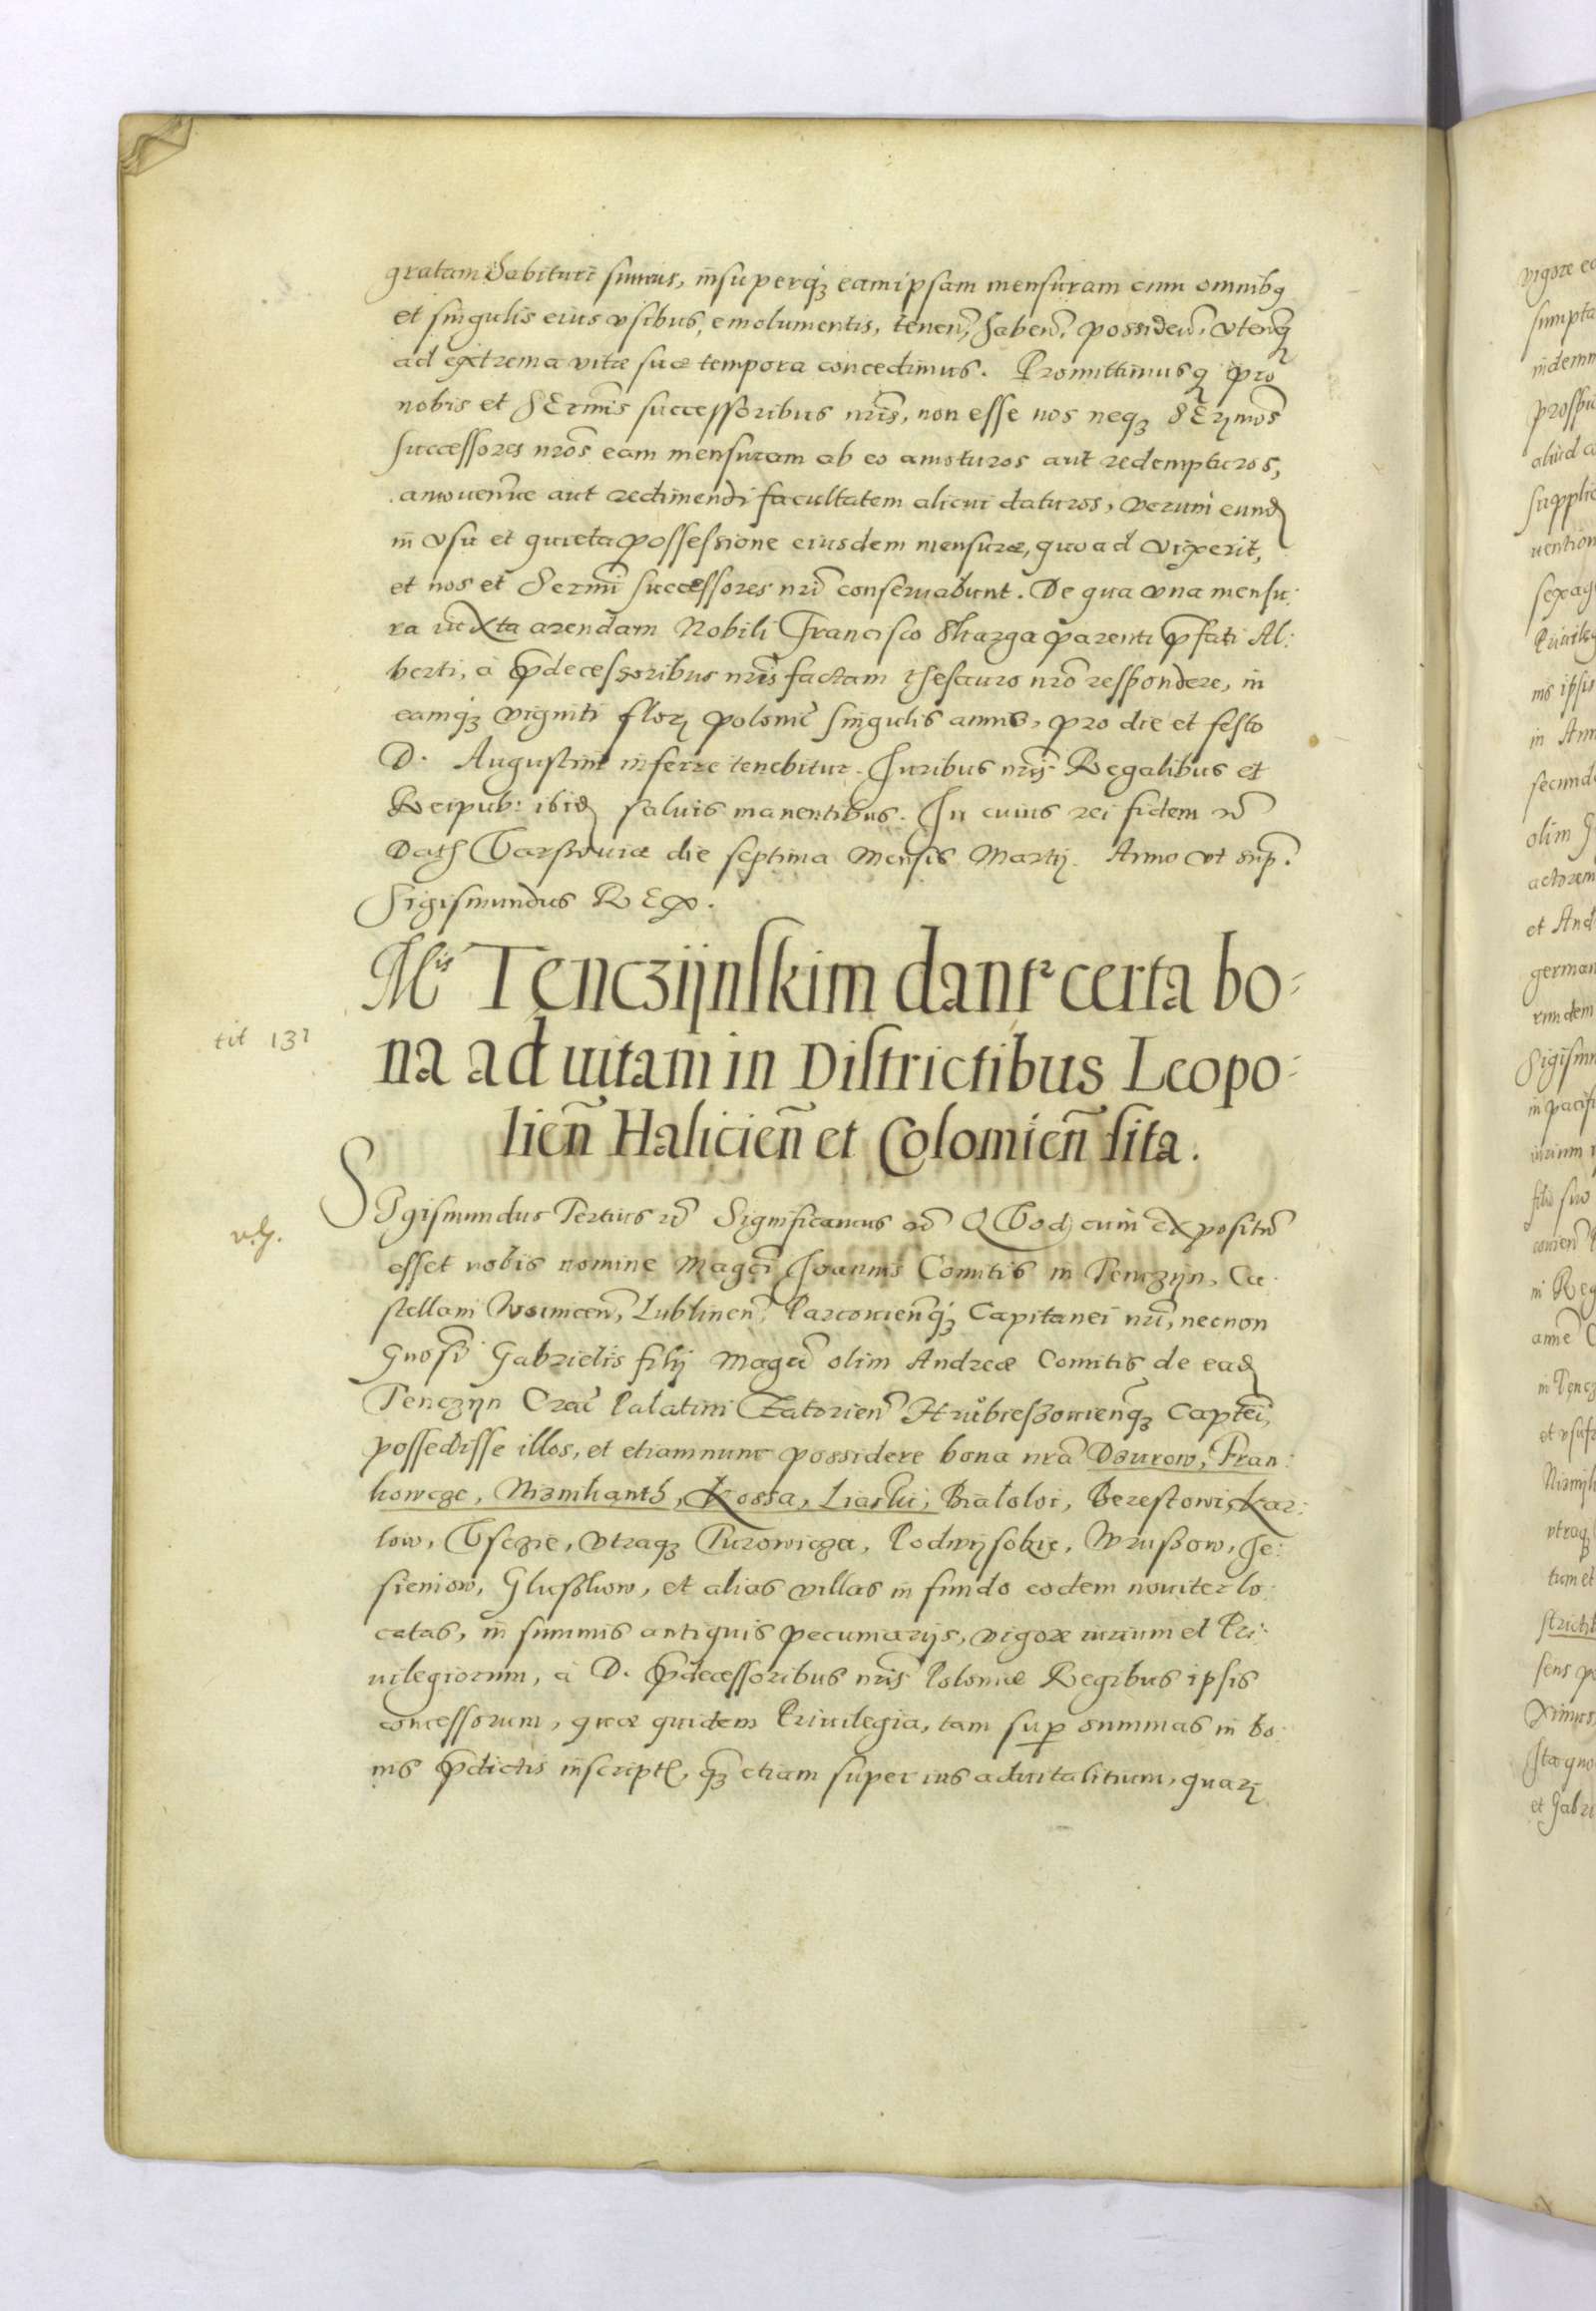 gratam habituri sumus, insuperq́ʒ eam ipsam mensuram cum omnibꝫ
et singulis eius vsibus, emolumentis, tenen̄, haben̄, possiden̄, vtenꝗ
ad extrema vitæ suæ tempora concedimus. Promittimusꝗ pro
nobis et SErm̄is successoribus nr̄is, non esse nos neqʒ SErmōs
successores nrōs eam mensuram ab eo amoturos aut redempturos,
amouenve aut redimendi facultatem alicui daturos, verum eund
in vsu et quieta possessione eiusdem mensuræ, quoad vixerit,
et nos et Serm̄i successores nrī conseruabunt. De qua vna mensu:
ra iuxta arendam Nobili Francisco Skarga parenti p̄fati Al:
berti, à p̄decessoribus nrīs factam thesauro nrō respondere, in
eamq́ʒ viginti flor polonic̄ singulis annis, pro die et festo
D. Augustini inferre tenebitur. Iuribus nrīs Regalibus et
Reipub: ibid saluis manentibus. In cuius rei fidem etc̄
Dat Varssouiæ die septima Mensis Martij. Anno vt sup̄.
Sigismundus REX.
M^is Tenczijnskim dantr certa bo:
na ad uitam in Districtibus Leopo:
lien̄ Halicien̄ et Colomien̄ sita.
tit 131
SIgismundus Tertius etc̄ Significamus etc̄ QVod cum expositū
esset nobis nomine Magcī Ioannis Comitis in Tenczijn, Ca:
stellani Woinicen̄, Lublinen̄, Parcouien̄q́ʒ Capitanei nrī, necnon
Gnosī Gabrielis filij Magcī olim Andreæ Comitis de ead
Tenczijn Crac̄ Palatini Zatorien̄ Hrubieszouien̄qʒ Captēi,
possedisse illos, et etiamnunc possidere bona nrā Dzurow, Tran:
kowcze, Kossa, Liaski, Bialoloi, Berestowi, Kar:
low, Vsczie, vtraqʒ Turowicza, Podwijsokie, Wruszow, Je:
sieniow, Gluszkow, et alias villas in fundo eodem nouiter lo:
catas, in summis antiquis pecuniarijs, vigore iurium et Pri:
uilegiorum, à D. p̄decessoribus nrīs Poloniæ Regibus ipsis
concessorum, quæ quidem Priuilegia, tam sup̄ summas in bo:
nis p̄dictis inscript, qʒ etiam super ius aduitalitium, quar